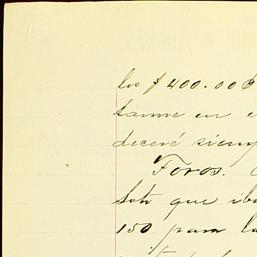 los $400.00
tarme en e
deceré siemp
Foros.
que iba
150 para la